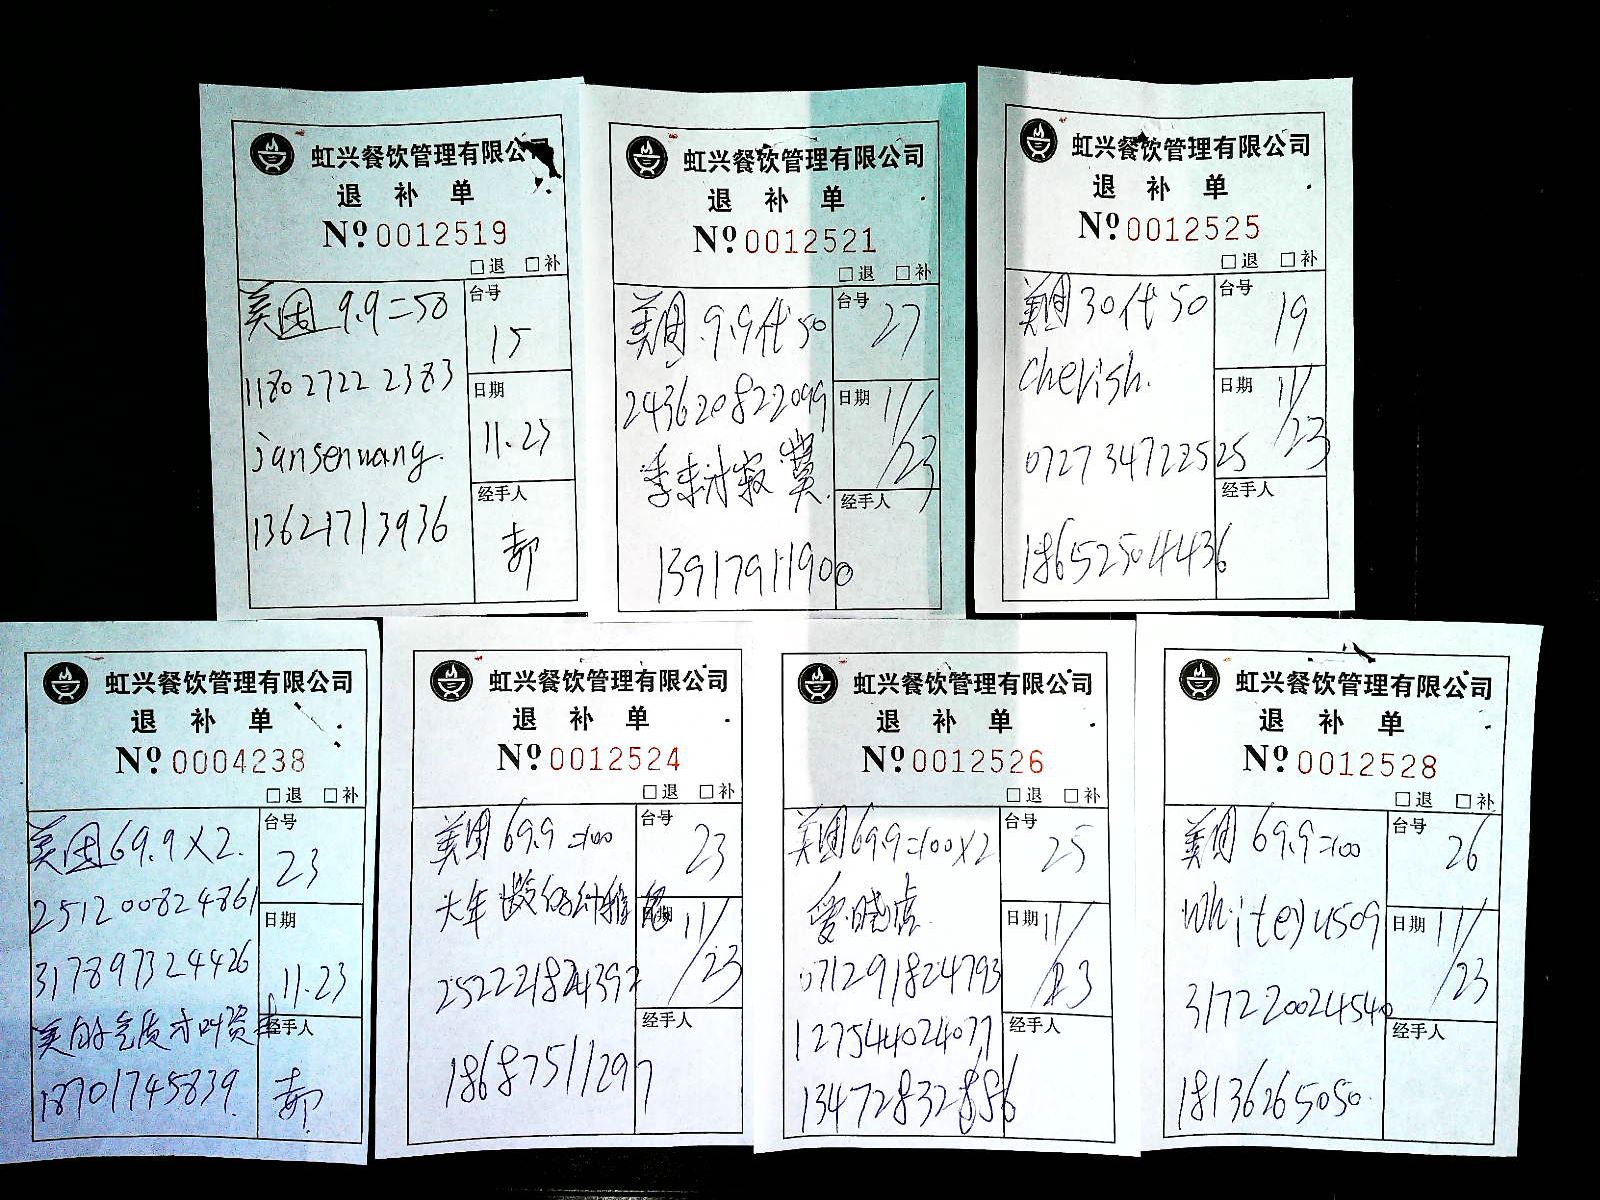 虹兴餐饮管理有限公司
退 补 单
Nº 0012519
□退 □补
美团 9.9=50
台号
15
1180 2722 2383
日期
11.23
jansenwang.
经手人
13621713936
郝
虹兴餐饮管理有限公司
退 补 单
Nº 0012521
□退 □补
美团 9.9代50
台号
27
243620822099
日期
11/23
季末冰寂
经手人
13917911900
虹兴餐饮管理有限公司
退 补 单
Nº 0012525
□退 □补
美团 30代50
台号
19
cherish.
日期
11/23
0727 34722525
经手人
18652504436
虹兴餐饮管理有限公司
退 补 单
Nº 0004238
□退 □补
美团69.9X2.
台号
23
251200824861
日期
11.23
317897324426
美的气质才叫资
经手人
18701745839.
郝
虹兴餐饮管理有限公司
退 补 单
Nº 0012524
□退 □补
美团69.9=100
台号
23
大年
日期
11/23
经手人
18687511297
虹兴餐饮管理有限公司
退 补 单
Nº 0012526
□退 □补
美团69.9=100X2
台号
25
爱晓虎.
日期
11/23
071291824793
127544024077
经手人
13472832886
虹兴餐饮管理有限公司
退 补 单
Nº 0012528
□退 □补
美团 69.9=100
台号
26
whitey4509
日期
11/23
317220024540
经手人
18136265050.